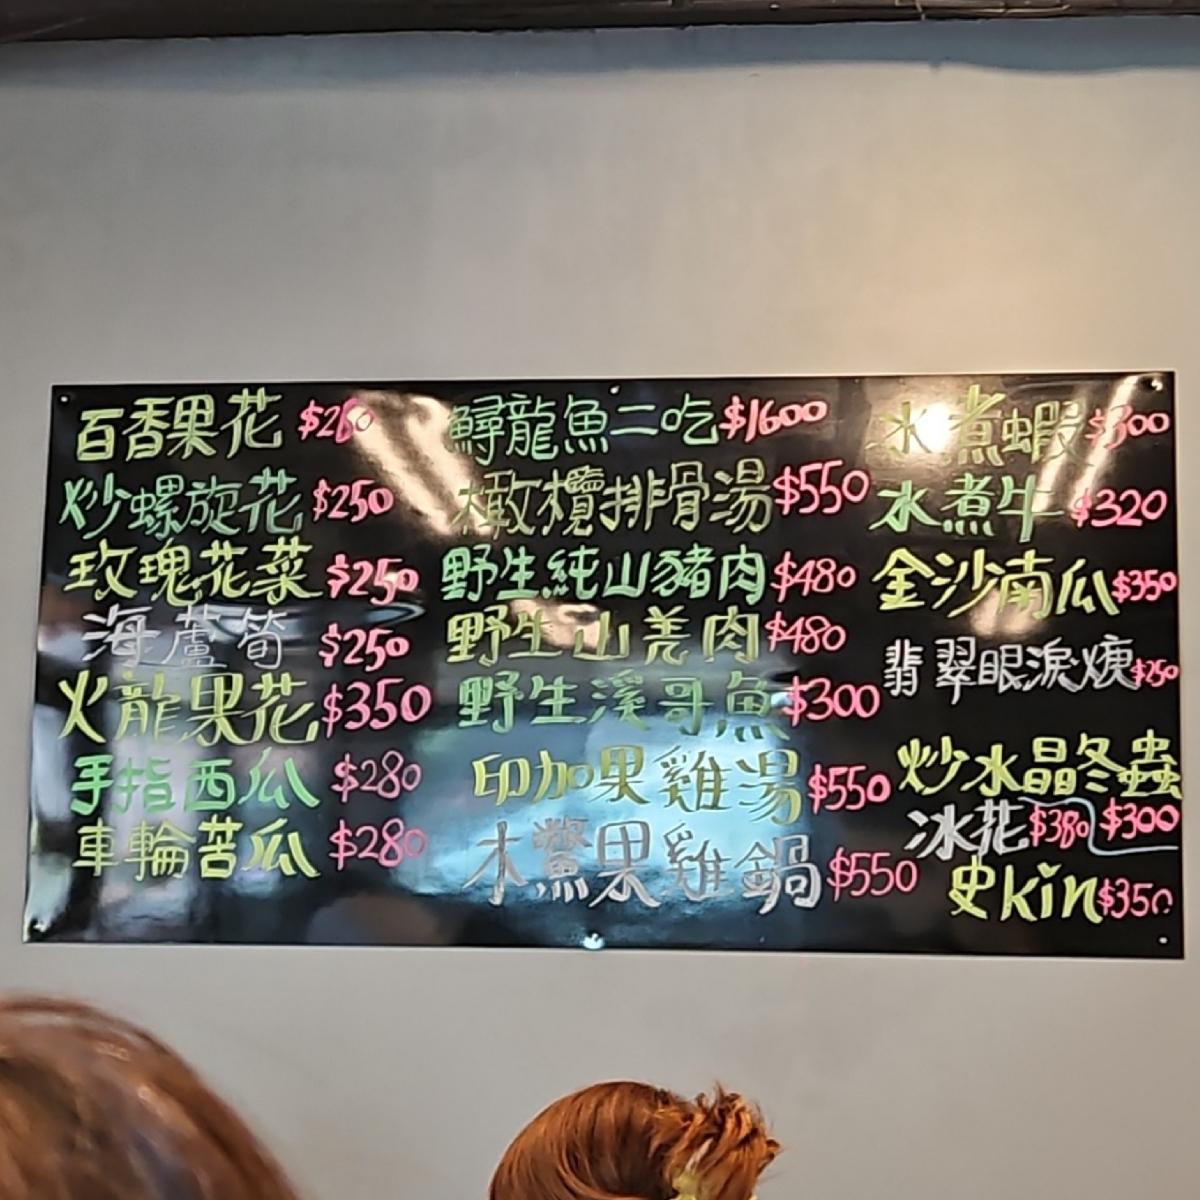 百香果花 $280
炒螺旋花 $250
玫瑰花菜 $250
海蘆筍 $250
火龍果花 $350
手指西瓜 $280
車輪苦瓜 $280
鱘龍魚二吃 $1600
橄欖排骨湯 $550
野生純山豬肉 $480
野生山羌肉 $480
野生溪哥魚 $300
印加果雞湯 $550
木鱉果雞鍋 $550
水煮蝦 $300
水煮牛 $320
金沙南瓜 $350
翡翠眼淚 $250
炒水晶冬蟲 $300
冰花 $380
史kin $350